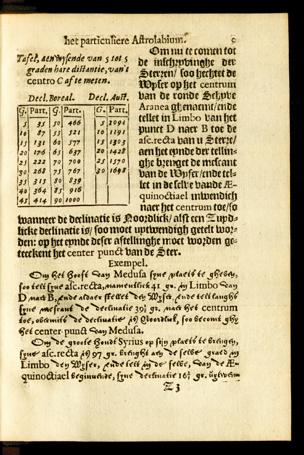 het particuliere Astrolabium.
Tafel, aenwysende van 5 tot 5
graden hare distantie, van't
centro C af te meten.
Decl. Boreal. Decl. Aust.
G. Part. G. Part. G. Part.
5 31 50 466 5 1091
10 87 55 521 10 1191
15 131 60 577 15 1303
20 176 65 637 20 1428
25 222 70 700 25 1570
30 268 75 767 30 1698
35 315 80 839
40 364 85 916
45 414 90 1000
Om nu te comen tot
de inschryvinghe der
Sterren/ soo hechtet de
Wyser op het centrum
van de ronde Schyve
Aranea ghenaemt/ ende
tellet in Limbo van het
punct D naer B toe de
asc.recta van u Sterre/
aen het eynde der tellin-
ghe brenget de mescant
van de Wyser/ ende tel-
let in de selve vande Æ-
quinoctiael inwendich
naer het centrum toe/ so
wanneer de declinatie is Noordlick/ alst een Zuyd-
licke declinatie is/ soo moet uytwendich getelt wor-
den: op het eynde deser aftellinghe moet worden ge-
teeckent het center punct van de Ster.
Exempel.
Om het Hooft van Medusa syne plaets te gheven,
soo telt syne asc.recta, namentlick 41 gr. in Limbo van
D naer B, ende aldaer stellet den Wyser, ende telt langhs
syne mescant de declinatie 39½ gr. naer het centrum
toe, obmits de declinatie is Noordlick, soo becomt ghy
het center punct van Medusa.
Om de groote Hondt Syrius op syn plaets te brenghen,
syne asc.recta is 97 gr. brenght aen de selve graed in
Limbo den Wyser, ende telt in de selve, van de Æ-
quinoctiael beginnende, syne declinatie 16½ gr. uytwen
Z 3